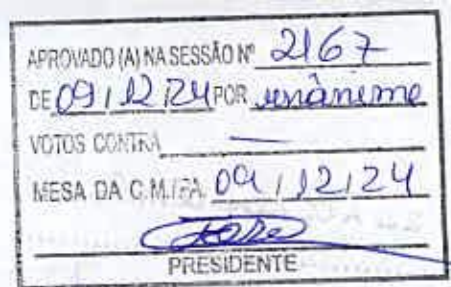 APROVADO (A) NA SESSÃO Nº 2167
DE 09 / 12 / 24 POR unânime
VOTOS CONTRA —
MESA DA C.M. 09 / 12 / 24
PRESIDENTE